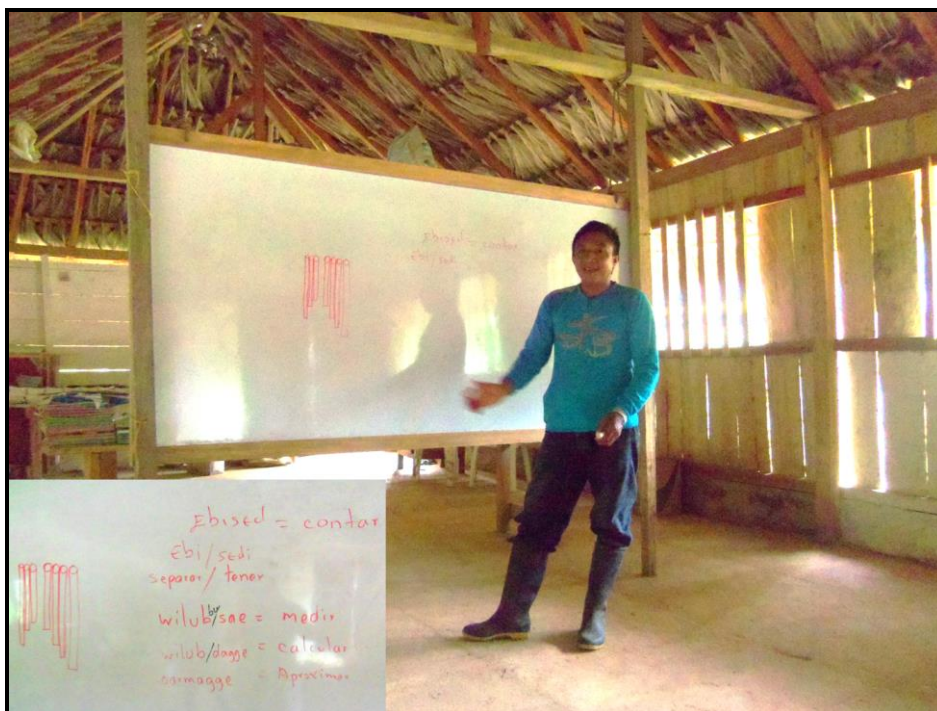 Ebised = contar
Ebi/sedi
Ebised = contar
Ebi/sedi
separar/tener
wilub/sae = medir
wilub/dagge = calcular
= Aproximar